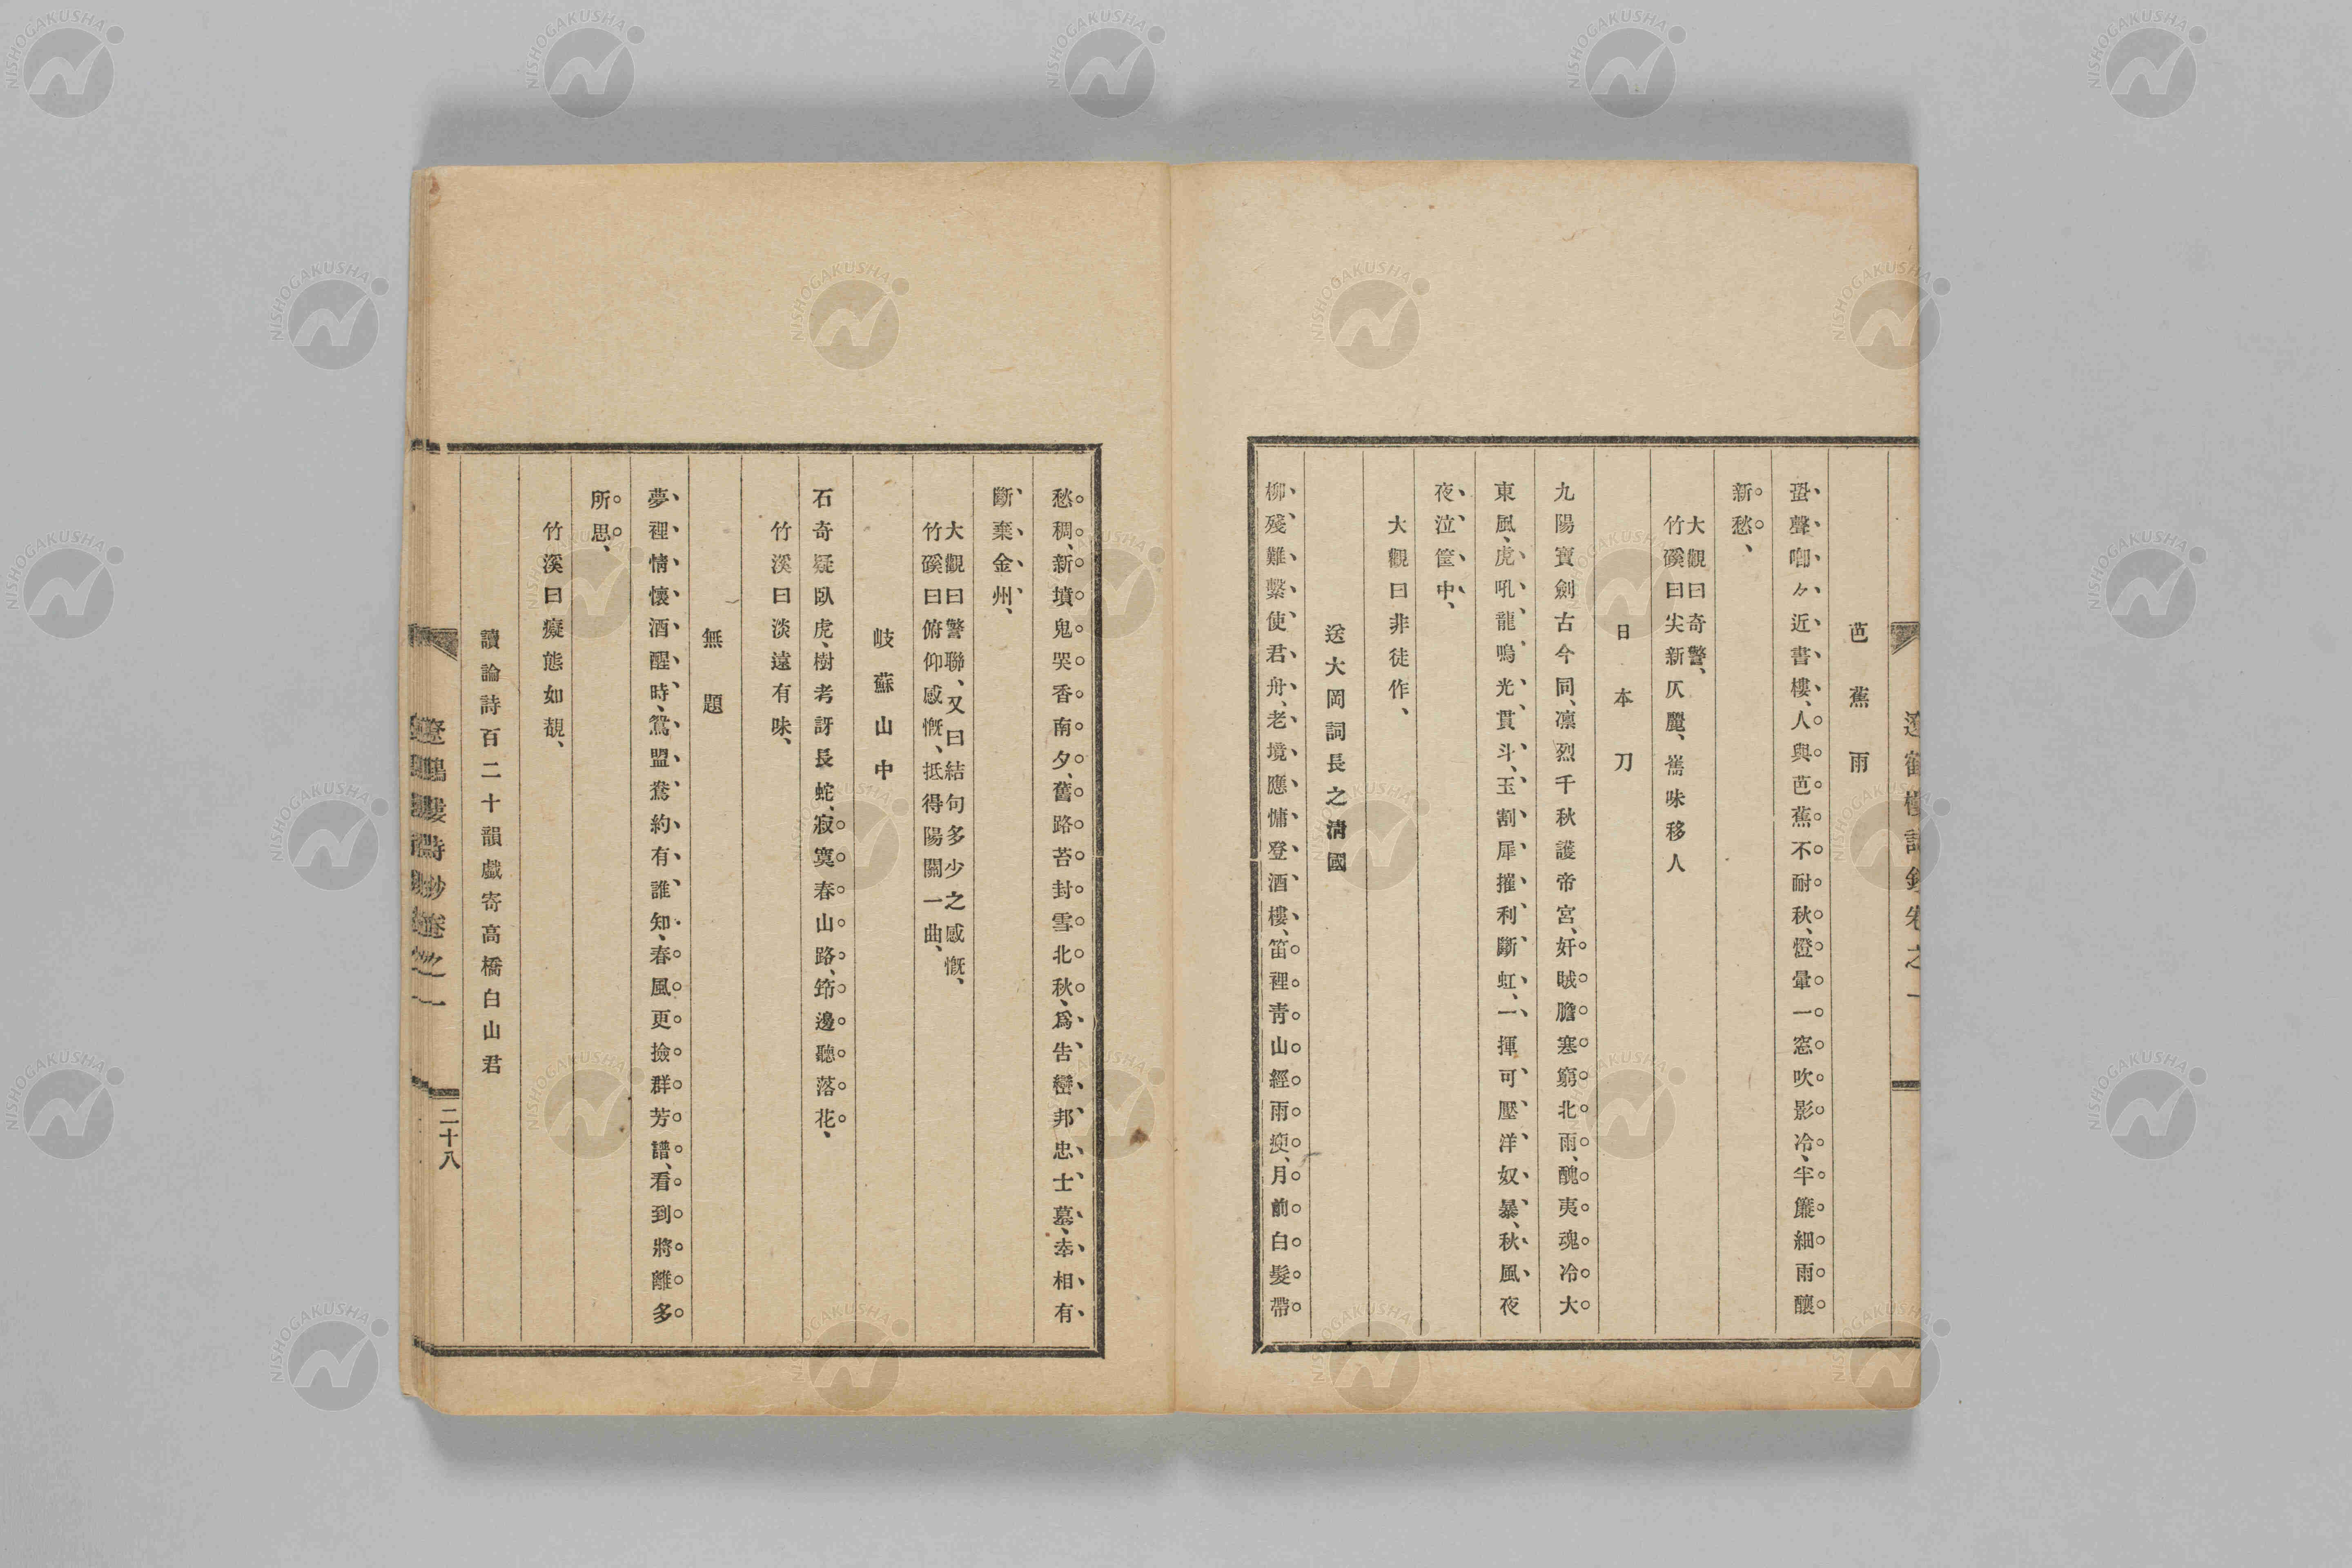 芭蕉雨
蛩聲喞々近書樓、人與芭蕉不耐秋、燈暈一窓吹影冷、半簾細雨釀
新愁、
大觀曰奇警、
竹磎曰尖新仄麗、雋味移人
日本刀
九陽寶劍古今同、凛烈千秋護帝宮、奸賊膽寒窮北雨、醜夷魂冷大
東風、虎吼龍鳴光貫斗、玉割犀摧利斷虹、一揮可壓洋奴暴、秋風夜
夜泣筐中、
大觀曰非徒作、
送大岡詞長之淸國
柳殘難繫使君舟、老境應慵登酒樓、笛裡靑山經雨瘦、月前白髮帶
愁稠、新墳鬼哭香南夕、舊路苔封雪北秋、爲吿巒邦忠士墓、幸相有
斷棄金州、
大觀曰警聯、又曰結句多少之感慨、
竹磎曰俯仰感慨、抵得陽關一曲、
岐蘇山中
石奇疑臥虎、樹考訝長蛇、寂寞春山路、筇邊聽落花、
竹溪曰淡遠有味、
無題
夢裡情懷酒醒時、鴛盟鴦約有誰知、春風更撿群芳譜、看到將離多
所思、
竹溪曰癡態如覩、
讀論詩百二十韻戲寄高橋白山君
二十八
NISHOGAKUSHA